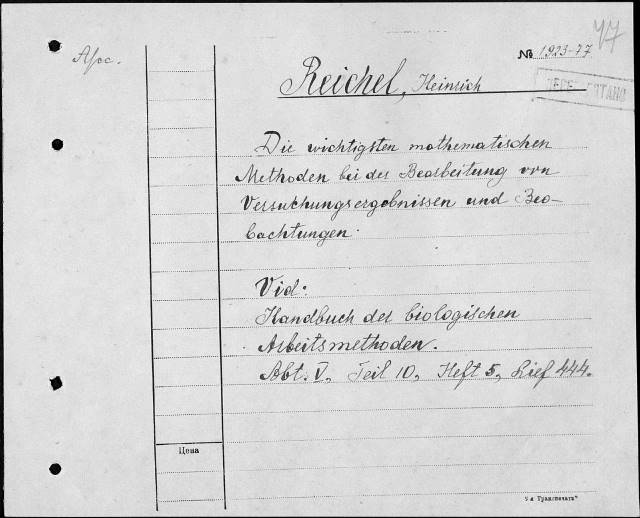 77
Асс.
№ 1923-77
Reichel, Heinrich
Die wichtigsten mathematischen
Methoden bei der Bearbeitung von
Versuchungsergebnissen und Beo-
bachtungen.
Vid.
Handbuch der biologischen
Arbeitsmethoden.
Abt. V, Teil 10, Heft 5, Lief 444.
Цена